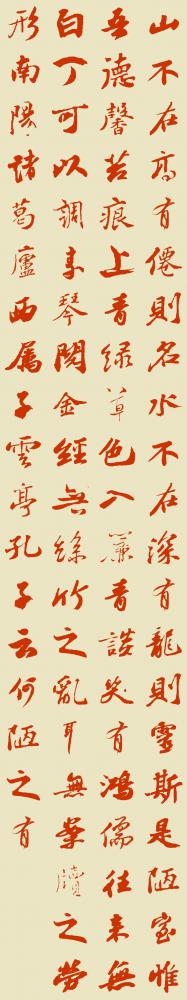 山不在高有僊則名水不在深有龍則靈斯是陋室惟
吾德馨苔痕上青綠草色入簾青談笑有鴻儒往來無
白丁可以調素琴閱金經无絲竹之亂耳無案牘之勞
形南陽諸葛廬西属子雲亭孔子云何陋之有